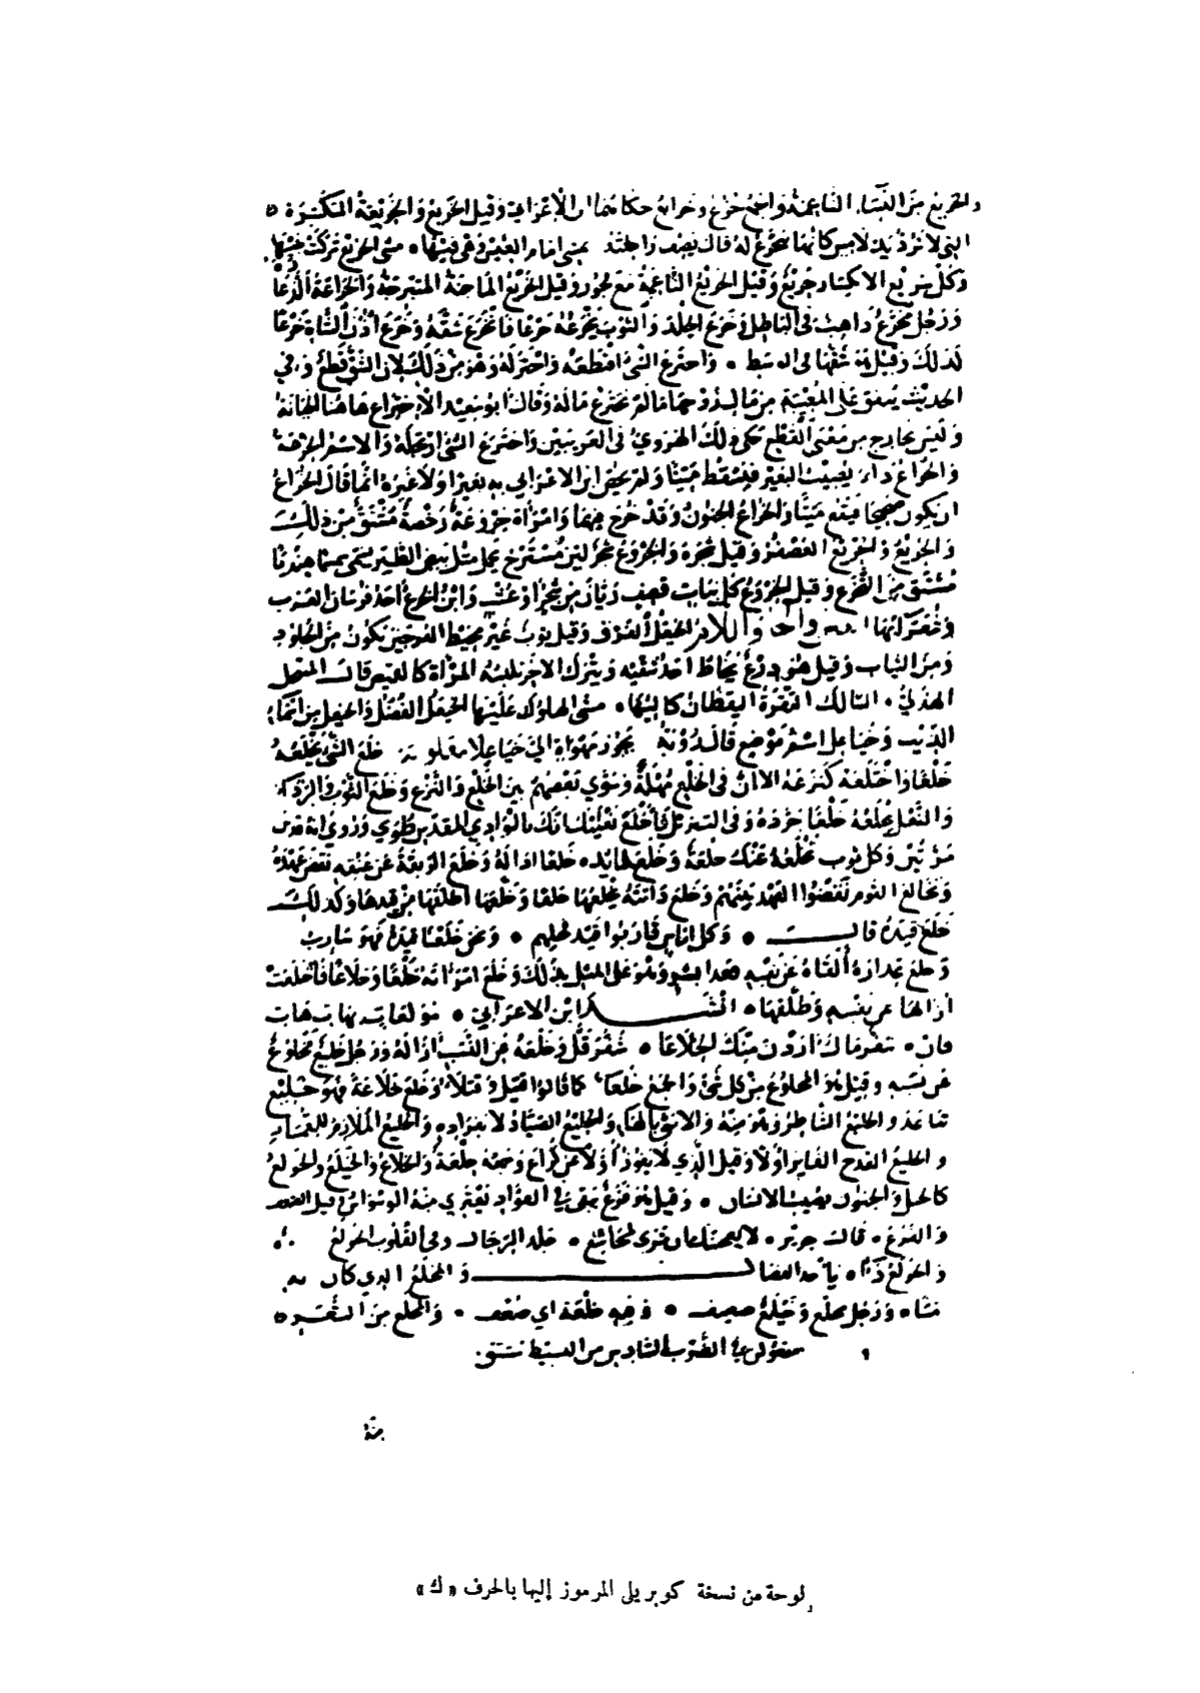 والخريع من النساء الناعمة والجمع خرع وخرائع حكاهما ابن الاعرابي وقيل الخريع والخريعة المتكسرة
التي لا ترد يد لامس كانها تتخرع له قال يصف راحلته
وكل سريع الانكسار خريع وقيل الخريع الناعمة مع فجور وقيل الخريع الماجنة المتبرجة والخراعة الدعارة
ورجل مخرع ذاهب في الباطل وخرع الجلد والثوب يخرعه خرعا فانخرع شقه وخرع اذن الشاة خرعا
كذلك وقيل هو شقها في الوسط • واخترع الشئ اقتطعه واختزله وهو من ذلك لان الشق قطع وفي
الحديث ينفق على المغيبة من مال زوجها ما لم تخترع ماله وقال ابو سعيد الاختراع هاهنا الخيانة
وليس بخارج من معنى القطع حكى ذلك الهروي في الغريبين واخترع الشئ ارتجله والاسم الخرعة
والخراع داء يصيب البعير فيسقط ميتا ولم يخص ابن الاعرابي به بعيرا ولا غيره انما قال الخراع
ان يكون صحيحا فيقع ميتا والخراع الجنون وقد خرع فيهما وامراة خروعة رخصة مشتق من ذلك
والخريع والخريع العصفر وقيل شجره والخروع شجر لين مسترخ يحمل مثل بيض الطير يسمى سمسما هنديا
مشتق من التخرع وقيل الخروع كل نبات قصيف ريان من شجر او عشب وابن الخرع احد فرسان العرب
وشعرائها العين والخاء واللام الخيعل الفرو وقيل ثوب غير مخيط الفرجين يكون من الجلود
ومن الثياب وقيل هو درع يخاط احد شقيه ويترك الاخر تلبسه المراة كالقميص قال المتنخل
الهذلي • السالك الثغرة اليقظان كالئها • مشي الهلوك عليها الخيعل الفضل والخيعل من اسماء
الذيب وخياعل اسم موضع قال رؤبة
خلعا واختلعه كنزعه الا ان في الخلع مهلة وسوى بعضهم بين الخلع والنزع وخلع الثوب والرداء
والنعل يخلعه خلعا جرده وفي التنزيل فاخلع نعليك انك بالوادي المقدس طوى وروي انه
وكل ثوب تخلعه عنك خلعة وخلع قائده خلعا ازاله وخلع الربقة عن عنقه نقض عهده
وتخالع القوم نقضوا العهد بينهم وخلع دابته يخلعها خلعا وخلعها اطلقها من قيدها وكذلك
خلع قيده قال • وكل اناس قاربوا قيد فحلهم • ونحن خلعنا قيده فهو سارب
وخلع عذاره القاه عن نفسه فعدا بشر وهو على المثل بذلك وخلع امراته خلعا وخلاعا فاختلعت
ازالها عن نفسه وطلقها • انشد ابن الاعرابي • مولعات بهات هات
فان • شفر مال اردن منك الخلاعا • شفر قل وخلعه من النسب ازاله ورجل خليع مخلوع
عن نفسه وقيل هو المخلوع من كل شئ والجمع خلعاء كما قالوا قتيل وقتلاء وخلع خلاعة فهو خليع
تباعد والخليع الشاطر وهو منه والانثى بالهاء والخليع الصياد لانفراده والخليع الملازم للقمار
والخليع القدح الفايز اولا وقيل الذي لا يفوز اولا عن كراع وجمعه خلعة والخلاع والخيلع والخولع
كالخبل والجنون يصيب الانسان • وقيل هو فزع يبقى في الفؤاد يعتري منه الوسواس وقيل الضعف
والفزع • قال جرير • لا يعجبنك ان ترى لمجاشع • جلد الرجال وفي القلوب الخولع
والخولع داء ياخذ الفصال والمخلع الذي كان به
مسا • ورجل مخلع وخيلع ضعيف • وفيه خلعة اي ضعف • والمخلع من الشعر
مفعولن في الضرب السادس من البسيط مشتق
منه
لوحة من نسخة كوبريلي المرموز إليها بالحرف « ك »